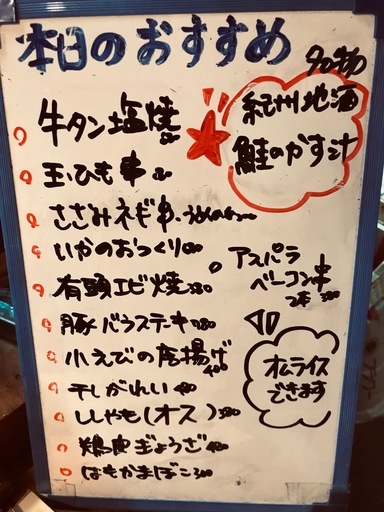 本日のおすすめ
名物
紀州地酒
鮭のかす汁
牛タン塩焼
玉ひも串
ささみネギ串
いかのおつくり
アスパラ
ベーコン串
有頭エビ焼 380
豚バラステーキ
小えびの唐揚げ
400
オムライス
できます
干しがれい 400
ししゃも(オス)
鶏皮ぎょうざ 400
はもかまぼこ 300